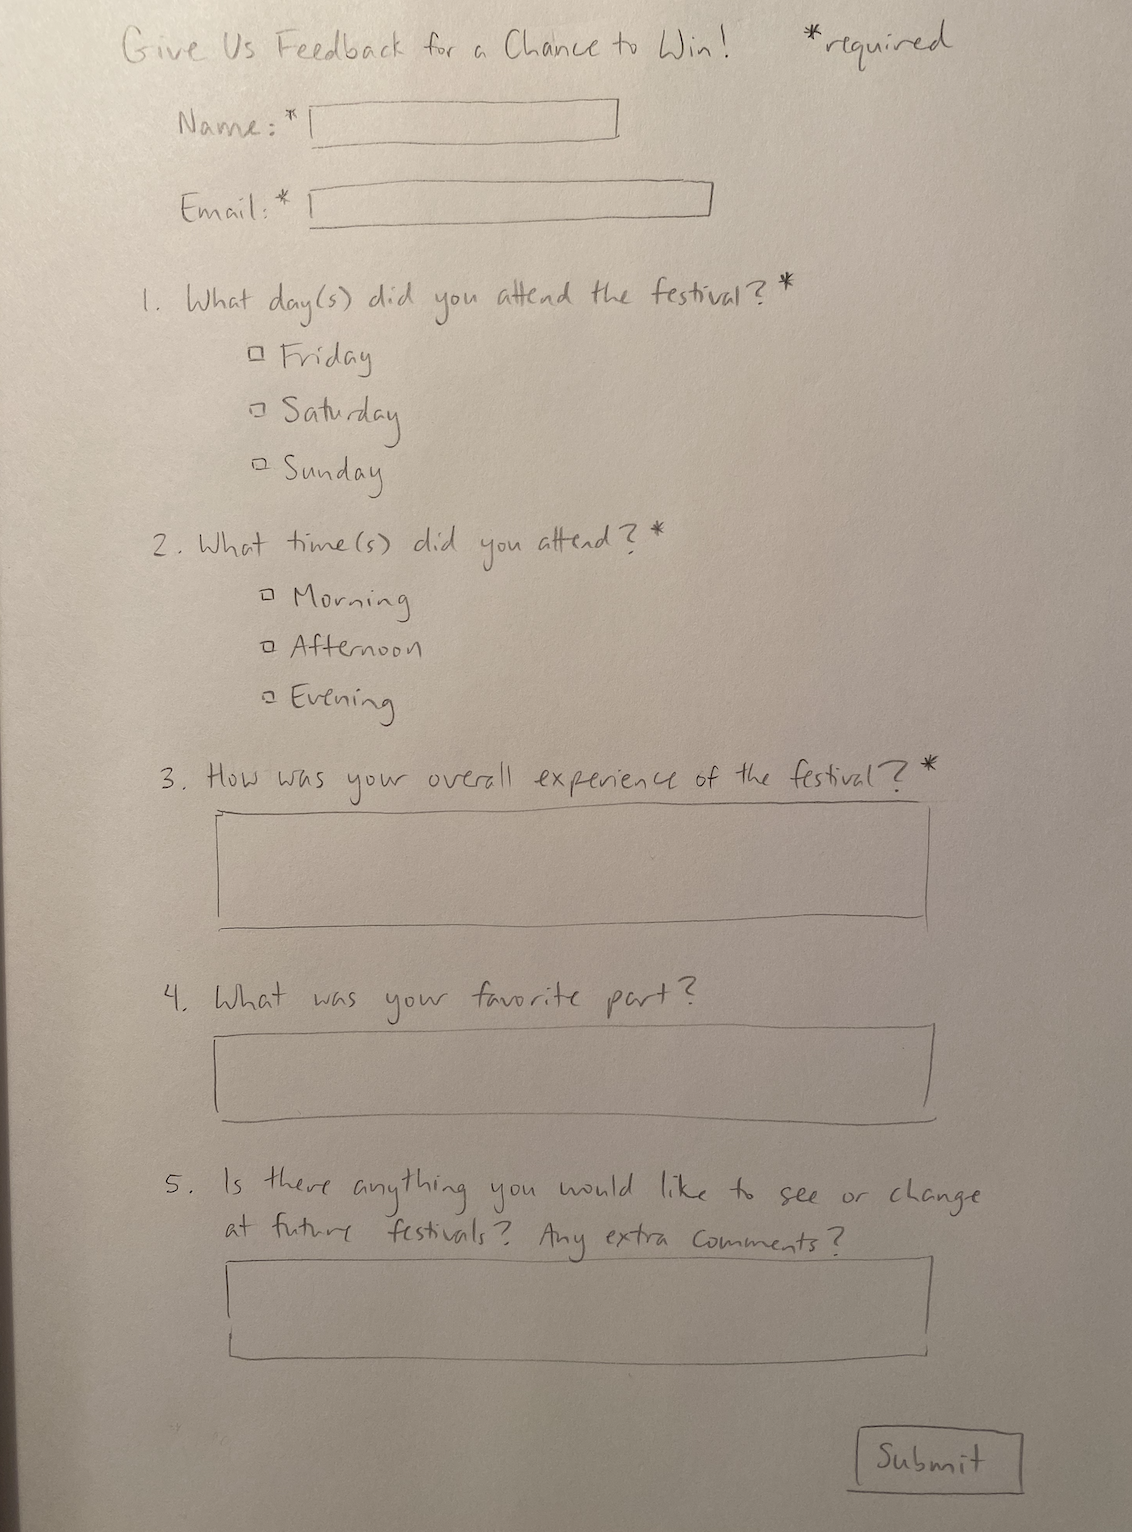 Give Us Feedback for a Chance to Win! *required
Name:*
Email:*
1. What day(s) did you attend the festival?*
Friday
Saturday
Sunday
2. What time(s) did you attend?*
Morning
Afternoon
Evening
3. How was your overall experience of the festival?*
4. What was your favorite part?
5. Is there anything you would like to see or change
at future festivals? Any extra comments?
Submit